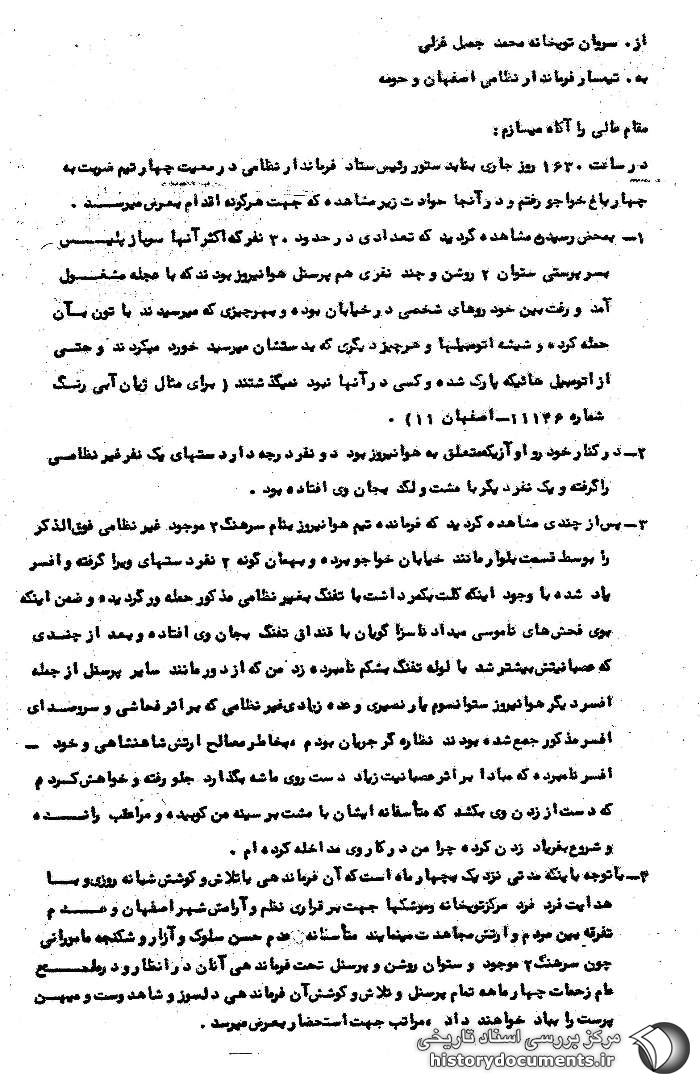 از. سروان توپخانه محمد جمیل قزلی
به. تیمسار فرماندار نظامی اصفهان و حومه
مقام عالی را آگاه میسازم:
در ساعت ۱۶۳۰ روز جاری بنابه ستور رئیس ستاد فرماندار نظامی در معیت چهار تیم ضربت به
چهار باغ خواجو رفتم و در آنجا حوادث زیر مشاهده که جهت هرگونه اقدام بعرض میرسد .
۱- بمحض رسیدن مشاهده گردید که تعدادی در حدود ۳۰ نفر که اکثر آنها سرباز پلیس
بسرپرستی ستوان ۲ روشن و چند نفری هم پرسنل هوانیروز بودند که با عجله مشغول
آمد و رفت بین خودروهای شخصی در خیابان بوده و بهرچیزی که میرسیدند با تون بآن
حمله کرده و شیشه اتومبیلها و هرچیز دیگری که بدستشان میرسید خورد میکردند و حتی
از اتومبیل هائیکه پارک شده و کسی در آنها نبود نمیگذشتند ( برای مثال ژیان آبی رنگ
شماره ۱۱۱۴۶-اصفهان ۱۱) .
۲- در کنار خود رو اوآزیکه متعلق به هوانیروز بود دو نفر درجه دار دستهای یک نفر غیر نظامی
را گرفته و یک نفر دیگر با مشت و لگد بجان وی افتاده بود .
۳- پس از چندی مشاهده گردید که فرمانده تیم هوانیروز بنام سرهنگ ۲ موجود غیر نظامی فوق الذکر
را بوسط قسمت بلوار مانند خیابان خواجو برده و بهمان گونه ۲ نفر دستهای ویرا گرفته و افسر
یاد شده با وجود اینکه کلت بکمر داشت با تفنگ بغیر نظامی مذکور حمله ور گردیده و ضمن اینکه
بوی فحش های ناموسی میداد ناسزا گویان با قنداق تفنگ بجان وی افتاده و بعد از چندی
که عصبانیتش بیشتر شد با لوله تفنگ بشکم نامبرده زد من که از دور مانند سایر پرسنل از جمله
افسر دیگر هوانیروز ستوانسوم یارنصیری و عده زیادی غیر نظامی که بر اثر فحاشی و سروصدای
افسر مذکور جمع شده بودند نظاره گر جریان بودم ، بخاطر مصالح ارتش شاهنشاهی و خود -
افسر نامبرده که مبادا بر اثر عصبانیت زیاد دست روی ماشه بگذارد جلو رفته و خواهش کردم
که دست از زدن وی بکشد که متأسفانه ایشان با مشت بر سینه من کوبیده و مراعقب رانده
و شروع بفریاد زدن کرده چرا من در کار وی مداخله کرده ام .
۴- با توجه باینکه مدتی نزدیک بچهارماه است که آن فرماندهی با تلاش و کوشش شبانه روزی و با
هدایت فرد فرد مرکز توپخانه و موشکها جهت برقراری نظم و آرامش شهر اصفهان و عدم
تفرقه بین مردم و ارتش مجاهدت مینمایند متأسفانه عدم حسن سلوک و آزار و شکنجه مامورانی
چون سرهنگ ۲ موجود و ستوان روشن و پرسنل تحت فرماندهی آنان در انظار و در ملاء
عام زحمات چهارماهه تمام پرسنل و تلاش و کوشش آن فرماندهی دلسوز و شاهدوست و میهن
پرست را بباد خواهند داد ، مراتب جهت استحضار بعرض میرسد .
مرکز بررسی اسناد تاریخی
historydocuments.ir